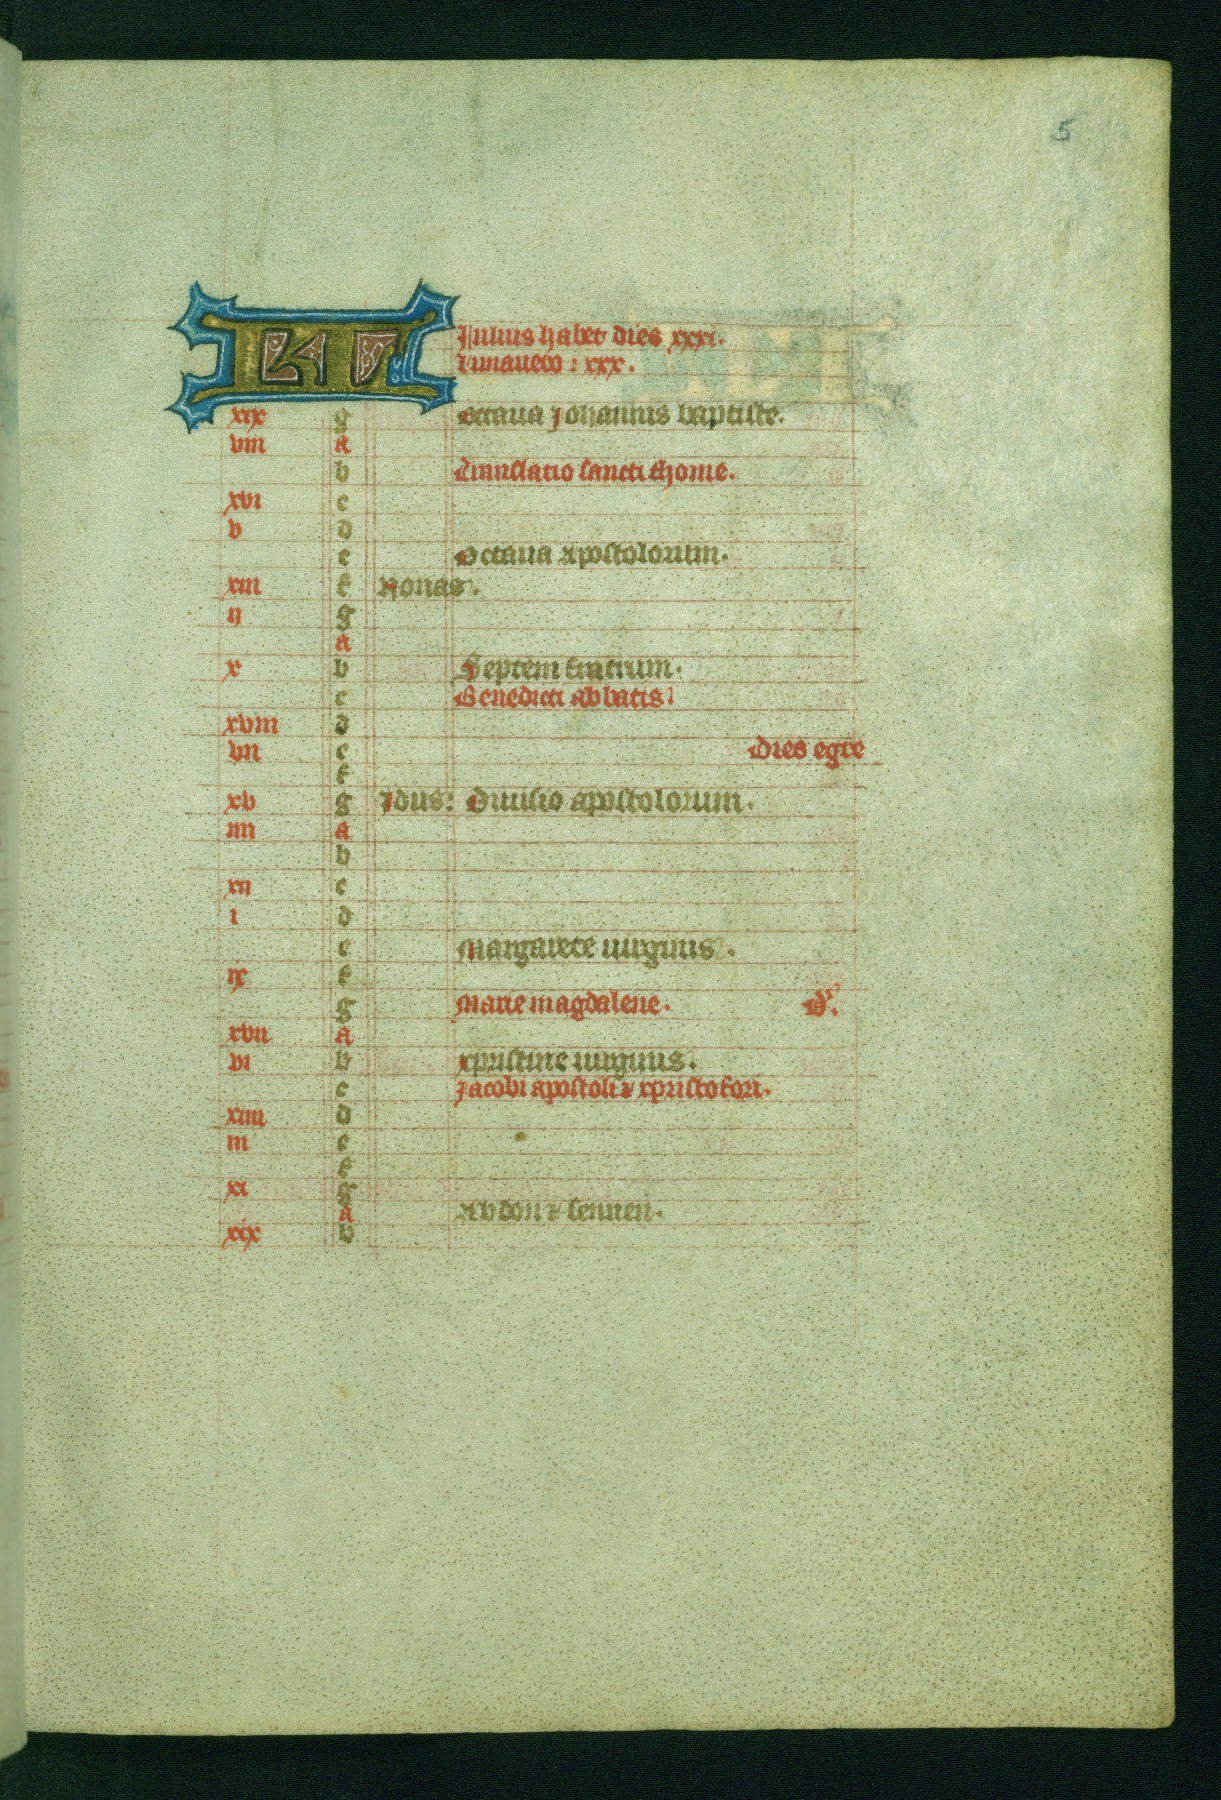 5
KL Julius habet dies xxxi.
Luna uero : xxx.
xix g Octaua Johannis baptiste.
viii a
b Translatio sancti thome.
xvi c
v d
e Octaua apostolorum.
xiii f Nonas.
ii g
a
x b Septem fratrum.
c Benedicti abbatis
xviii d
vii e dies egre
f
xv g Idus: Diuisio apostolorum.
iiii a
b
xii c
i d
e Margarete uirginis.
ix f
g Marie magdalene. d'.
xvii a
vi b xpristine uirginis.
c Jacobi apostoli & xpristofori.
xiiii d
iii e
f
xi g
a Abdon & sennen.
xix b